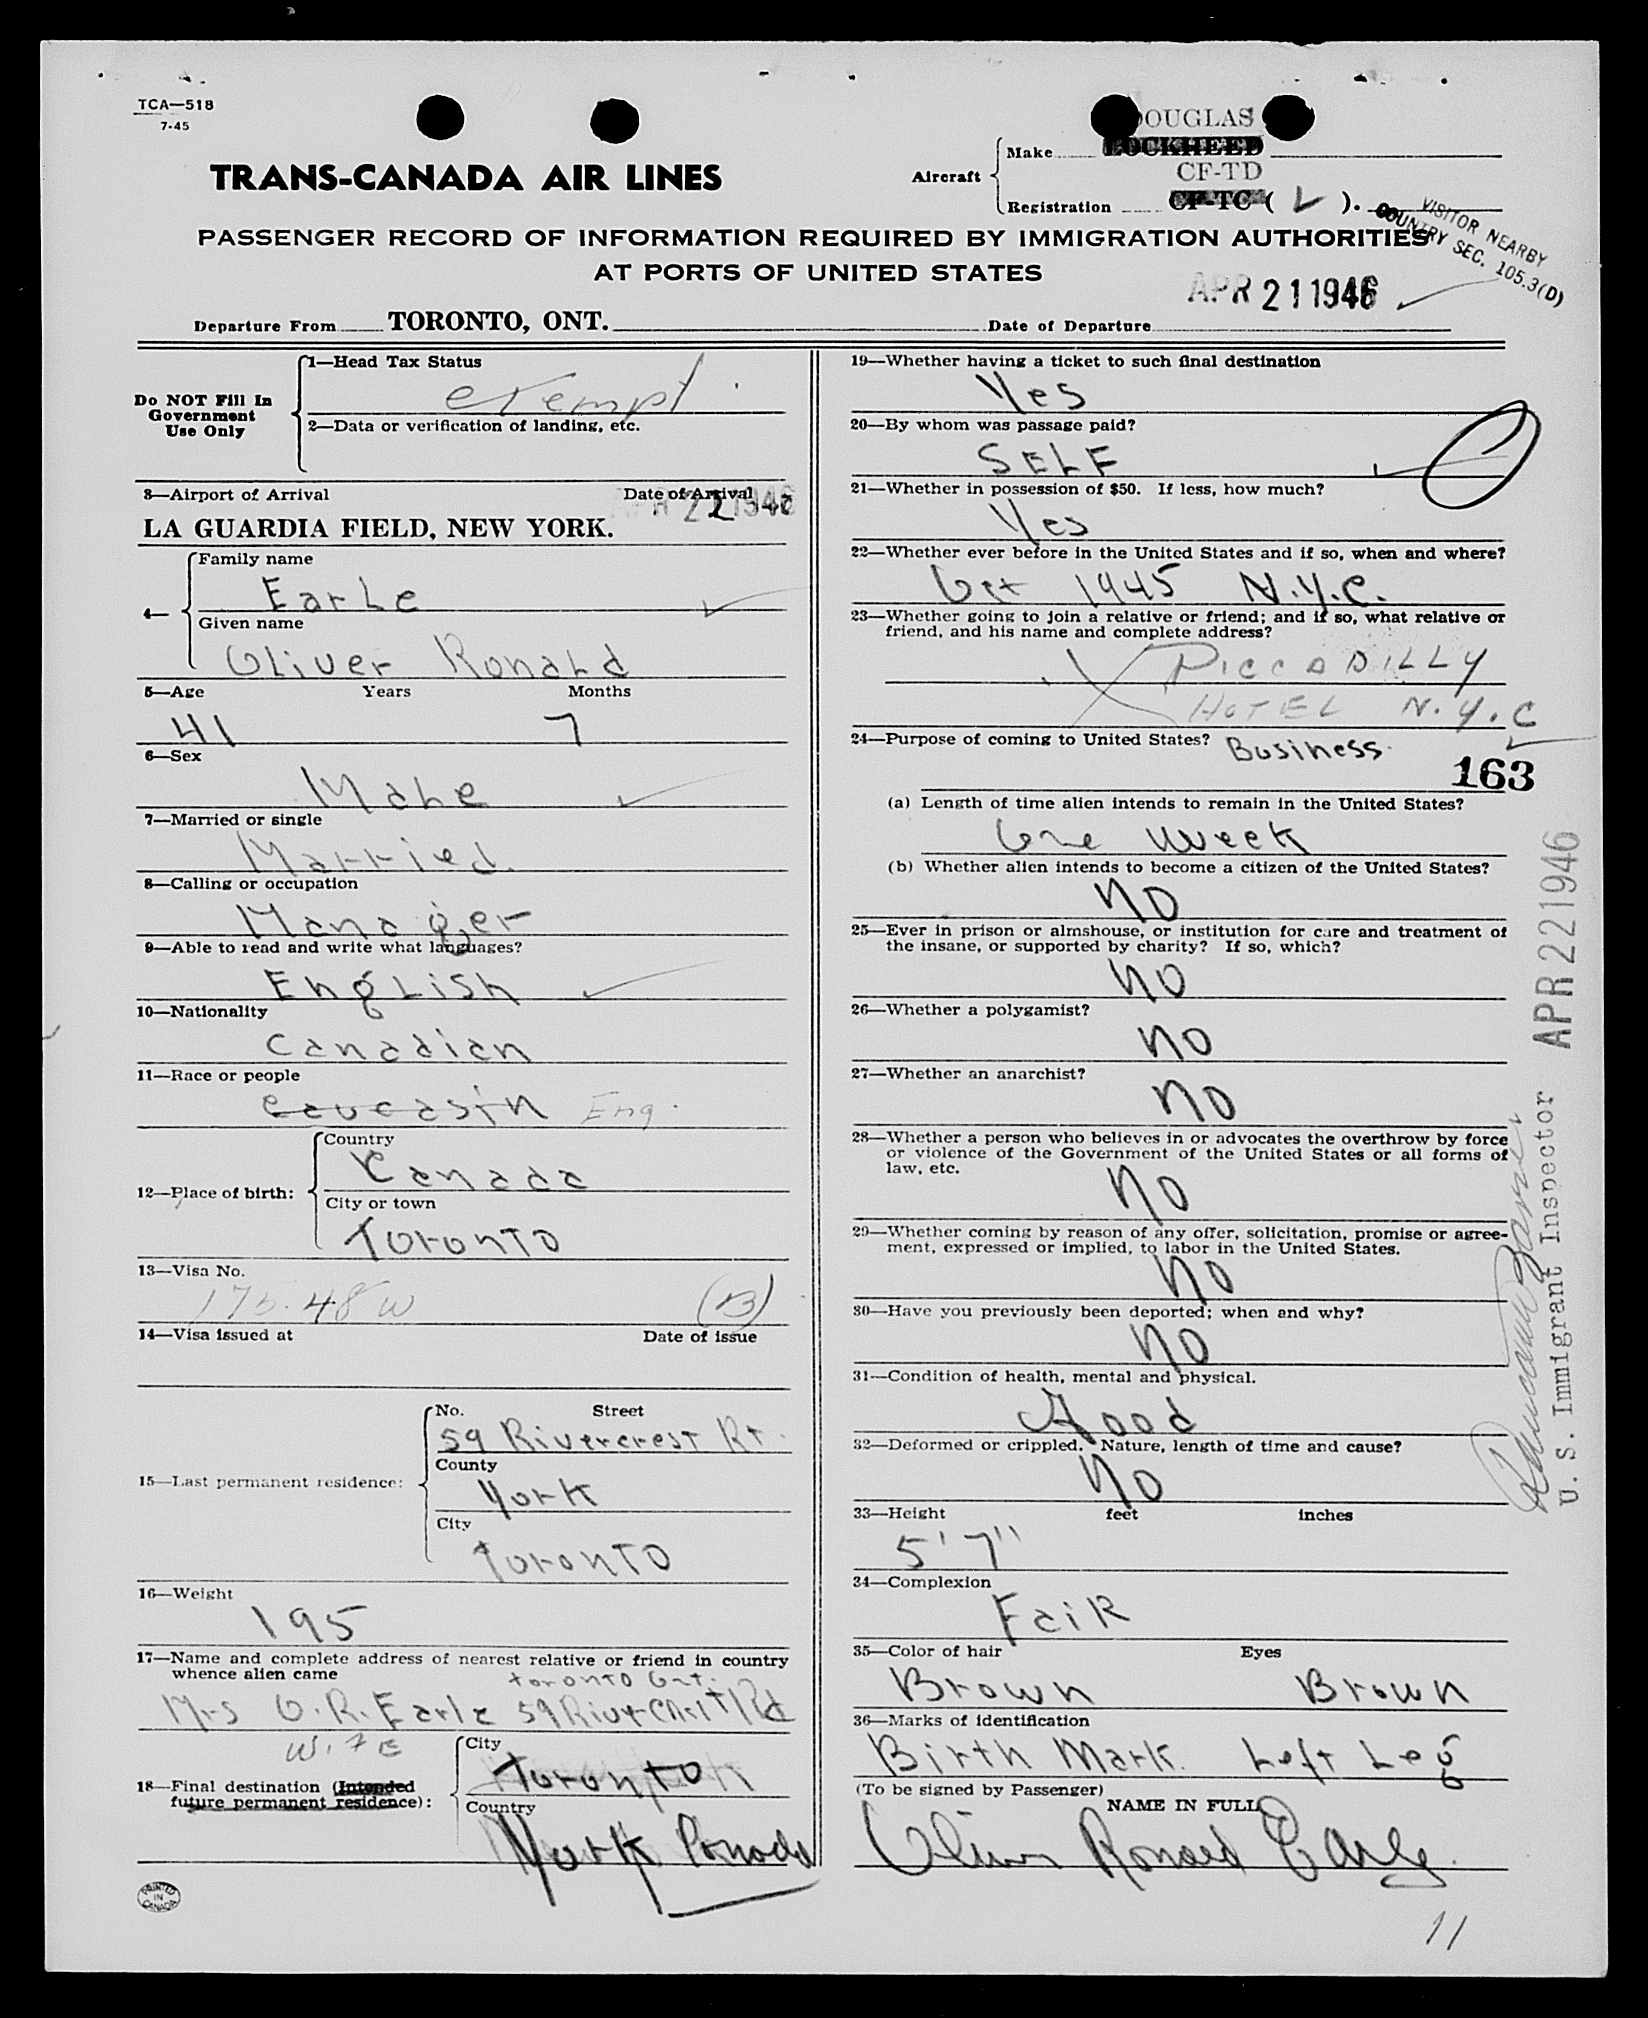 TCA—518
7-45
TRANS-CANADA AIR LINES
Aircraft
Make
DOUGLAS
LOCKHEED
CF-TD
Registration CF-TC ( L ).
VISITOR NEARBY
COUNTRY SEC. 105.3(D)
PASSENGER RECORD OF INFORMATION REQUIRED BY IMMIGRATION AUTHORITIES
AT PORTS OF UNITED STATES
Departure From TORONTO, ONT. Date of Departure APR 21 1946
Do NOT Fill In
Government
Use Only
1—Head Tax Status
exempt
2—Data or verification of landing, etc.
3—Airport of Arrival Date of Arrival APR 22 1946
LA GUARDIA FIELD, NEW YORK.
4—
Family name
Earle
Given name
Oliver Ronald
5—Age Years Months
41 7
6—Sex
Male
7—Married or single
Married
8—Calling or occupation
Manager
9—Able to read and write what languages?
English
10—Nationality
Canadian
11—Race or people
Caucasin Eng.
12—Place of birth:
Country
Canada
City or town
Toronto
13—Visa No.
175.48 W (B)
14—Visa issued at Date of issue
15—Last permanent residence:
No. Street
59 Rivercrest Rd.
County
York
City
Toronto
16—Weight
195
17—Name and complete address of nearest relative or friend in country
whence alien came
Toronto Ont.
Mrs O. R. Earle 59 Rivercrest Rd
Wife
18—Final destination (Intended
future permanent residence):
City
Toronto
Country
York Canada
PRINTED
IN
CANADA
19—Whether having a ticket to such final destination
Yes
20—By whom was passage paid?
SELF
21—Whether in possession of $50. If less, how much?
Yes
22—Whether ever before in the United States and if so, when and where?
Oct 1945 N.Y.C.
23—Whether going to join a relative or friend; and if so, what relative or
friend, and his name and complete address?
PICCADILLY
HOTEL N.Y.C
24—Purpose of coming to United States? Business.
163
(a) Length of time alien intends to remain in the United States?
One week
(b) Whether alien intends to become a citizen of the United States?
No
25—Ever in prison or almshouse, or institution for care and treatment of
the insane, or supported by charity? If so, which?
No
26—Whether a polygamist?
No
27—Whether an anarchist?
No
28—Whether a person who believes in or advocates the overthrow by force
or violence of the Government of the United States or all forms of
law, etc.
No
29—Whether coming by reason of any offer, solicitation, promise or agree-
ment, expressed or implied, to labor in the United States.
No
30—Have you previously been deported; when and why?
No
31—Condition of health, mental and physical.
Good
32—Deformed or crippled. Nature, length of time and cause?
No
33—Height feet inches
5' 7"
34—Complexion
Fair
35—Color of hair Eyes
Brown Brown
36—Marks of identification
Birth Mark. Left Leg
(To be signed by Passenger)
NAME IN FULL
Oliver Ronald Earle
11
APR 22 1946
U. S. Immigrant Inspector